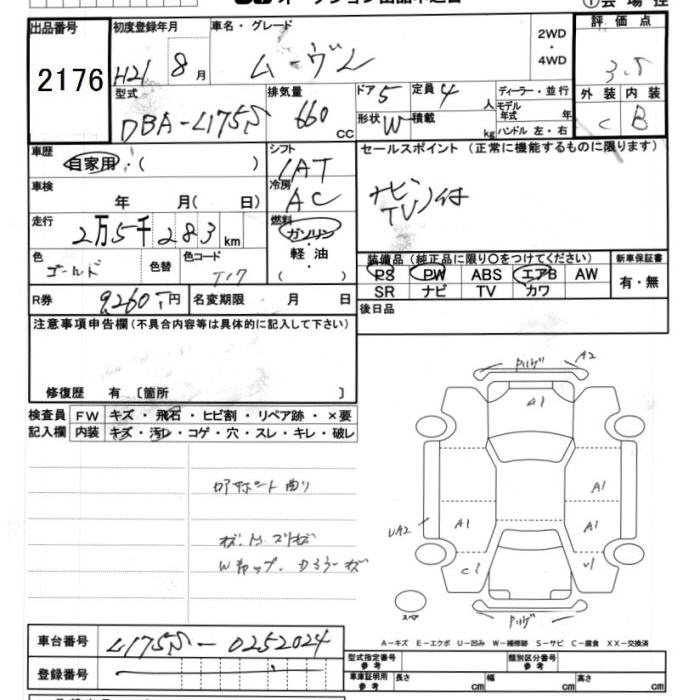 出品番号
2176
初度登録年月
H21 8月
車名・グレード
ムーヴL
2WD・4WD
評価点
3.5
外装 内装
C B
型式
DBA-L175S
排気量
660 cc
ドア 5
定員 4 人
形状 W
積載 kg
ディーラー・並行
モデル年式 年
ハンドル 左・右
車歴
自家用・( )
シフト
IAT
セールスポイント (正常に機能するものに限ります)
ナビ
TV 付
車検
年 月( 日)
冷房
AC
走行
2万5千283 km
燃料
ガソリン・軽油
( )
色
ゴールド
色替
色コード
T17
装備品 (純正品に限り〇をつけてください)
PS PW ABS エアB AW
SR ナビ TV カワ
新車保証書
有・無
R券 9,260円
名変期限 月 日
後日品
注意事項申告欄 (不具合内容等は具体的に記入して下さい)
修復歴 有 〔箇所 〕
検査員記入欄
FW キズ・飛石・ヒビ割・リペア跡・×要
内装 キズ・汚レ・コゲ・穴・スレ・キレ・破レ
A2
A1
A1
A1
A1
UA2
C1
U1
スペア
A-キズ E-エクボ U-凹み W-補修跡 S-サビ C-腐食 XX-交換済
車台番号
L175S-0252024
登録番号
型式指定番号 参考
類別区分番号 参考
車庫証明用 参考
長さ cm
幅 cm
高さ cm